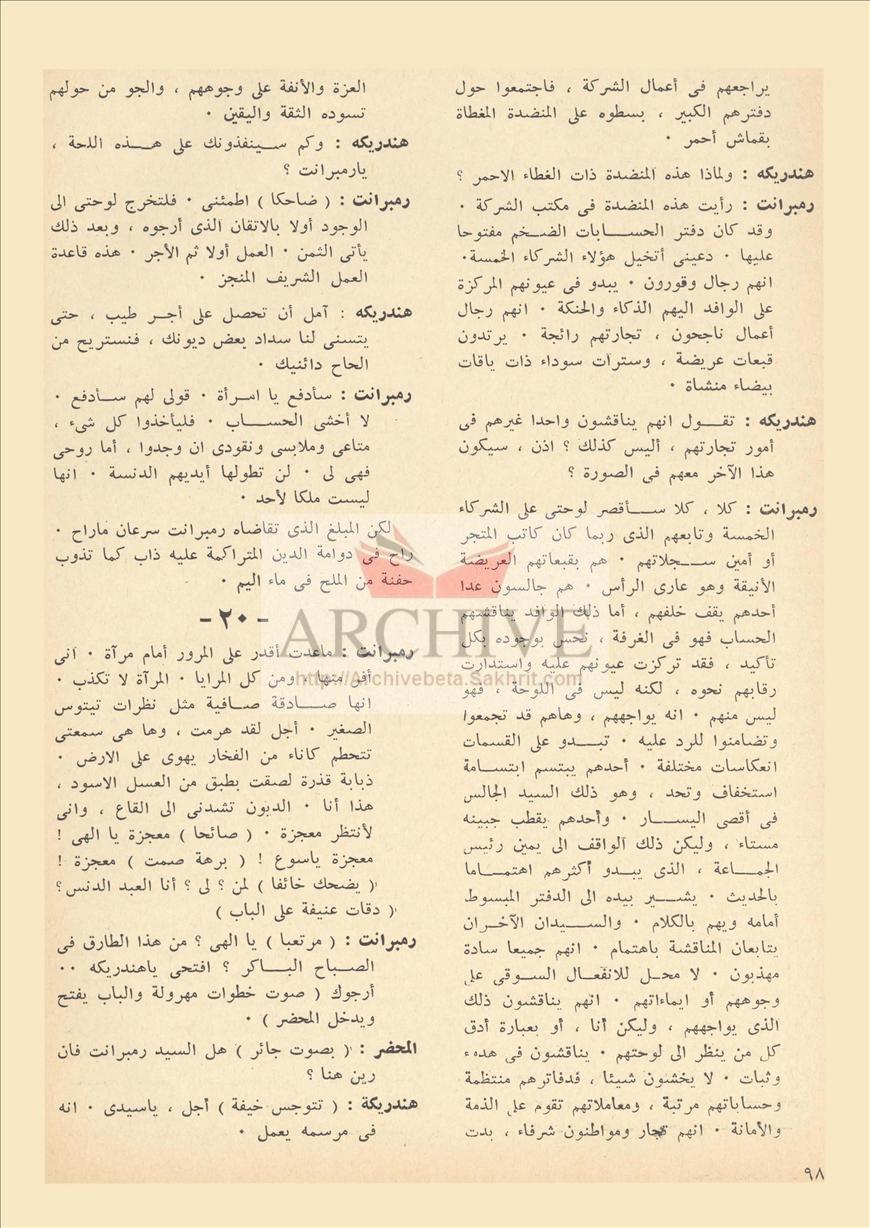 يراجعهم فى أعمال الشركة ، فاجتمعوا حول
دفترهم الكبير ، بسطوه على المنضدة المغطاة
بقماش أحمر ·
هندريكه : ولماذا هذه المنضدة ذات الغطاء الاحمر ؟
رمبرانت : رأيت هذه المنضدة فى مكتب الشركة ·
وقد كان دفتر الحسابات الضخم مفتوحا
عليها · دعينى أتخيل هؤلاء الشركاء الخمسة·
انهم رجال وقورون · يبدو فى عيونهم المركزة
على الوافد اليهم الذكاء والحنكة · انهم رجال
أعمال ناجحون ، تجارتهم رائجة · يرتدون
قبعات عريضة ، وسترات سوداء ذات ياقات
بيضاء منشاة ·
هندريكه : تقول انهم يناقشون واحدا غيرهم فى
أمور تجارتهم ، أليس كذلك ؟ اذن ، سيكون
هذا الآخر معهم فى الصورة ؟
رمبرانت : كلا ، كلا سأقصر لوحتى على الشركاء
الخمسة وتابعهم الذى ربما كان كاتب المتجر
أو أمين سجلاتهم · هم بقبعاتهم العريضة
الأنيقة وهو عارى الرأس · هم جالسون عدا
أحدهم يقف خلفهم ، أما ذلك الوافد يناقشهم
الحساب فهو فى الغرفة ، نحس بوجوده بكل
تأكيد ، فقد تركزت عيونهم عليه واستدارت
رقابهم نحوه ، لكنه ليس فى اللوحة ، فهو
ليس منهم · انه يواجههم ، وهاهم قد تجمعوا
وتضامنوا للرد عليه · تبدو على القسمات
انعكاسات مختلفة · أحدهم يبتسم ابتسامة
استخفاف وتحد ، وهو ذلك السيد الجالس
فى أقصى اليسار · وأحدهم يقطب جبينه
مستاء ، وليكن ذلك الواقف الى يمين رئيس
الجماعة ، الذى يبدو أكثرهم اهتماما
بالحديث · يشير بيده الى الدفتر المبسوط
أمامه ويهم بالكلام · والسيدان الآخران
يتابعان المناقشة باهتمام · انهم جميعا سادة
مهذبون · لا محل للانفعال السوقى على
وجوههم أو ايماءاتهم · انهم يناقشون ذلك
الذى يواجههم ، وليكن أنا ، أو بعبارة أدق
كل من ينظر الى لوحتهم · يناقشون فى هدوء
وثبات · لا يخشون شيئا ، فدفاترهم منتظمة
وحساباتهم مرتبة ، ومعاملاتهم تقوم على الذمة
والأمانة · انهم تجار ومواطنون شرفاء ، بدت
العزة والأنفة على وجوههم ، والجو من حولهم
تسوده الثقة واليقين ·
هندريكه : وكم سينفذونك على هذه اللحة ،
يارمبرانت ؟
رمبرانت : ( ضاحكا ) اطمئنى · فلتخرج لوحتى الى
الوجود أولا بالاتقان الذى أرجوه ، وبعد ذلك
يأتى الثمن · العمل أولا ثم الأجر · هذه قاعدة
العمل الشريف المنجز ·
هندريكه : آمل أن تحصل على أجر طيب ، حتى
يتسنى لنا سداد بعض ديونك ، فنستريح من
الحاح دائنيك ·
رمبرانت : سأدفع يا امرأة · قولى لهم سأدفع ·
لا أخشى الحساب · فليأخذوا كل شىء ،
متاعى وملابسى ونقودى ان وجدوا ، أما روحى
فهى لى · لن تطولها أيديهم الدنسة · انها
ليست ملكا لأحد ·
لكن المبلغ الذى تقاضاه رمبرانت سرعان ماراح ·
راح فى دوامة الدين المتراكمة عليه ذاب كما تذوب
حفنة من الملح فى ماء اليم ·
- ٢٠ -
رمبرانت : ماعدت أقدر على المرور أمام مرآة · انى
أفر منها ، ومن كل المرايا · المرآة لا تكذب ·
انها صادقة صافية مثل نظرات تيتوس
الصغير · أجل لقد هرمت ، وها هى سمعتى
تتحطم كاناء من الفخار يهوى على الارض ·
ذبابة قذرة لصقت بطبق من العسل الاسود ،
هذا أنا · الديون تشدنى الى القاع ، وانى
لأنتظر معجزة · ( صائحا ) معجزة يا الهى !
معجزة ياسوع ! ( برهة صمت ) معجزة !
( يضحك خائفا ) لمن ؟ لى ؟ أنا العبد الدنس؟
( دقات عنيفة على الباب )
رمبرانت : ( مرتعبا ) يا الهى ؟ من هذا الطارق فى
الصباح الباكر ؟ افتحى ياهندريكه ··
أرجوك ( صوت خطوات مهرولة والباب يفتح
ويدخل المحضر ) ·
المحضر : ( بصوت جائر ) هل السيد رمبرانت فان
رين هنا ؟
هندريكة : ( تتوجس خيفة ) أجل ، ياسيدى · انه
فى مرسمه يعمل ·
٩٨
ARCHIVE
http://Archivebeta.Sakhrit.com